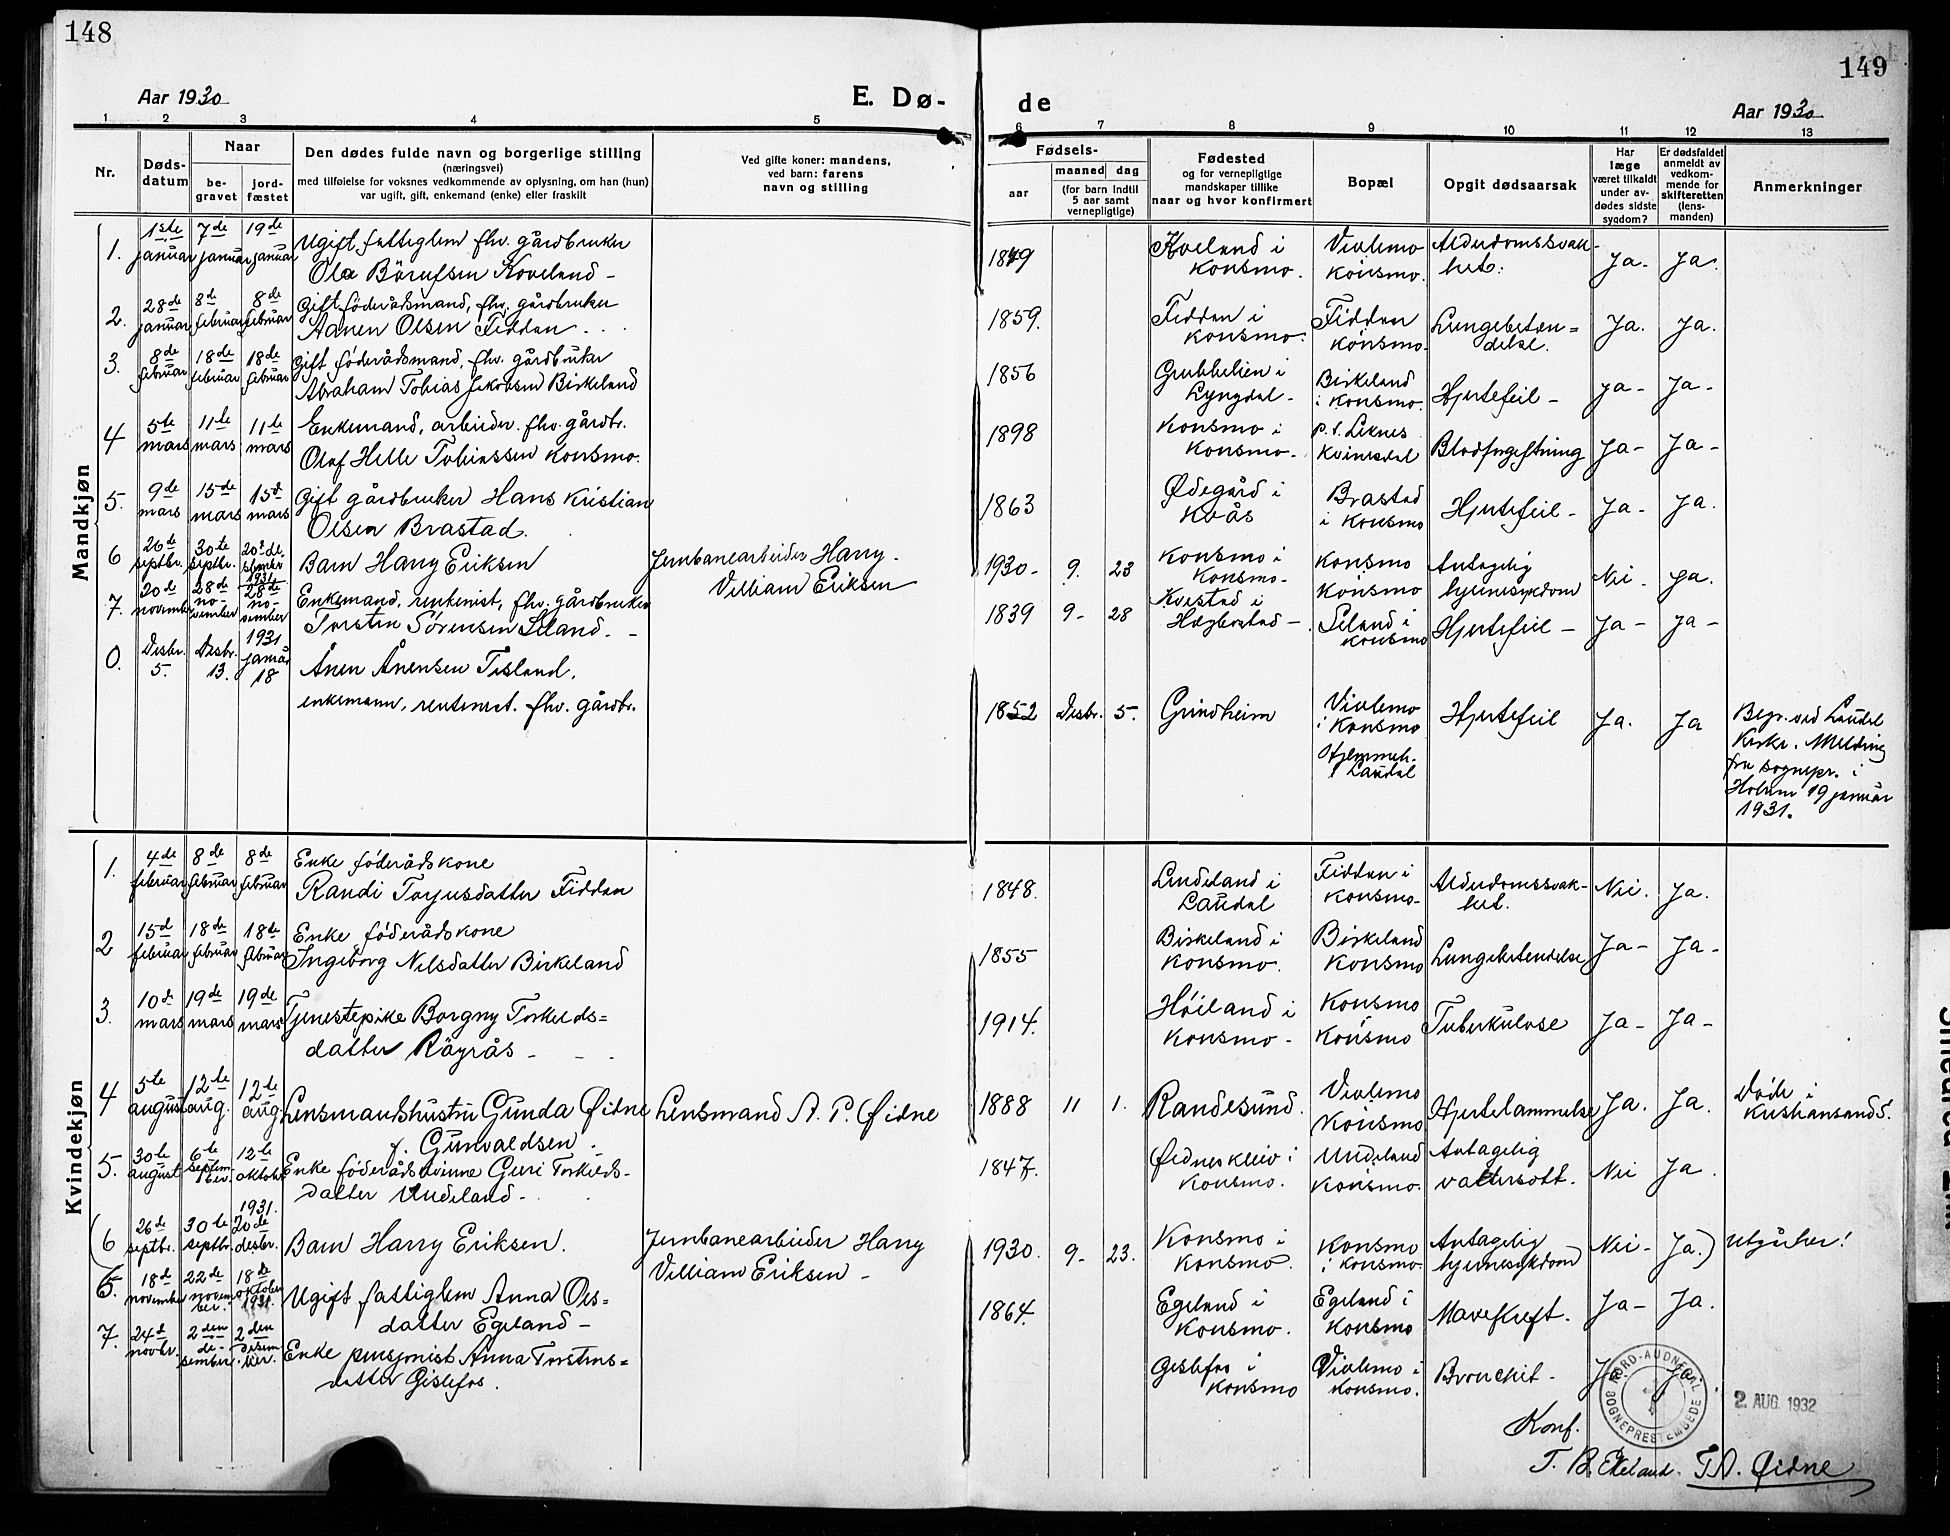 148
Aar 1930
E. Dø-
1 2 3 4 5
Nr.
Døds-
datum
Naar
be-
gravet
jord-
fæstet
Den dødes fulde navn og borgerlige stilling
(næringsvei)
med tilføielse for voksnes vedkommende av oplysning, om han (hun)
var ugift, gift, enkemand (enke) eller fraskilt
Ved gifte koner: mandens,
ved barn: farens
navn og stilling
Mandkjøn
1. 1ste januar 7de januar 19de januar
Ugift fattiglem fhv. gårdbruker
Ola Börufsen Koveland -
2. 28de januar 8de februar 8de februar
Gift föderådsmand, fhv. gårdbruker
Aanen Olsen Fiddan
3. 8de februar 18de februar 18de februar
Gift föderådsmand, fhv. gårdbruker
Abraham Tobias Jakobsen Birkeland
4 5te mars 11te mars 11te mars
Enkemand, arbeider. fhv. gårdbr.
Olaf Helle Tobiassen Konsmo.
5. 9de mars 15de mars 15d mars
Gift gårdbruker Hans Kristian
Olsen Brastad.
6 26de septbr. 30te septbr. 20de desember 1931
Barn Harry Eriksen
Jernbanearbeider Harry
Villiam Eriksen
7. 20de november 28de november 28de november
Enkemand, rentenist, fhv. gårdbruker
Torsten Sørensen Seland. -
0. Desbr. 5. Desbr. 13. 1931 januar 18
Ånen Ånensen Tisland,
enkemann, rentenist. fhv. gårdbr.
Kvindekjøn
1. 4de februar 8de februar 8de februar
Enke föderådskone
Randi Torjusdatter Fiddan
2 15d februar 18de februar 18de februar
Enke föderådskone
Ingeborg Nilsdatter Birkeland
3. 10d mars 19de mars 19de mars
Tjenestepike Borgny Torkelds=
datter Röyrås -
4 5te august 12te aug. 12te aug.
Lensmandshustru Gunda Øidne
f. Gunvaldsen -
Lensmand A. P. Øidne
5. 30te august 6te september 12te oktober
Enke föderådskvinne Guri Torkilds-
datter Undeland -
(6 26de septbr. 30te septbr. 1931. 20de desbr.
Barn Harry Eriksen.
Jernbanearbeider Harry
Villiam Eriksen -
6. 18de november 22de november. 18de oktober 1931.
Ugift fattiglem Anna Ols=
datter Egeland -
7. 24d novbr. 2den desember 2den desember.
Enke pensjonist Anna Torstens=
datter Gislefos.
149
de
Aar 1930
6 7 8 9 10 11 12 13
Fødsels-
aar
maaned dag
(for barn indtil
5 aar samt
vernepligtige)
Fødested
og for vernepligtige
mandskaper tillike
naar og hvor konfirmert
Bopæl
Opgit dødsaarsak
Har
læge
været tilkaldt
under av-
dødes sidste
sygdom?
Er dødsfaldet
anmeldt av
vedkom-
mende for
skifteretten
(lens-
manden)
Anmerkninger
1849 Koveland i Konsmo. Vivlemo Konsmo. Alderdomssvak- het. Ja. Ja.
1859. Fiddan i Konsmo. Fiddan Konsmo. Lungebeten= delse. Ja. Ja.
1856 Grubbelien i Lyngdal - Birkeland i Konsmo. Hjertefeil - Ja - Ja -
1898 Konsmo i Konsmo - p.t. Liknes Kvinesdal Blodforgiftning Ja - Ja -
1863 Ødegård i Kvås Brastad i Konsmo Hjertefeil - Ja - Ja.
1930 - 9. 23 Konsmo i Konsmo - Konsmo Konsmo Antagelig hjernesykdom Nei - Ja.
1839 9 - 28 Kvestad i Hægbostad - Seland i Konsmo Hjertefeil - Ja - Ja -
1852 Desbr. 5. Grindheim Vivlemo i Konsmo Hjemmeh. i Laudal Hjertefeil Ja. Ja
Begr. ved Laudal
Kirke. Melding
fra sognepr. i
Holum 19 januar
1931.
1848. Lindeland i Laudal Fiddan i Konsmo - Alderdomssvak- het. Nei. Ja.
1855 Birkeland i Konsmo. Birkeland Konsmo Lungebetendelse Ja - Ja -
1914. Höiland i Konsmo - Konsmo Konsmo Tuberkulose Ja - Ja -
1888 11 1. Randesund. Vivlemo Konsmo Hjertelammelse Ja. Ja.
Döde i
Kristiansand S.
1847. Øidneskleiv i Konsmo. Undeland Konsmo. Antagelig vattersott. Nei Ja.
1930. 9 - 23. Konsmo i Konsmo. Konsmo i Konsmo Antagelig hjernesykdom Nei - Ja.) utgåher!
1864. Egeland i Konsmo. Egeland i Konsmo Mavekreft. Ja - Ja.
Gislefos i Konsmo Vivlemo i Konsmo. Bronchit - Ja Ja
NORD-AUDNEDAL
SOGNEPRESTEMBEDE
2. AUG. 1932
Konf.
T. B. Ekeland. T. A. Øidne